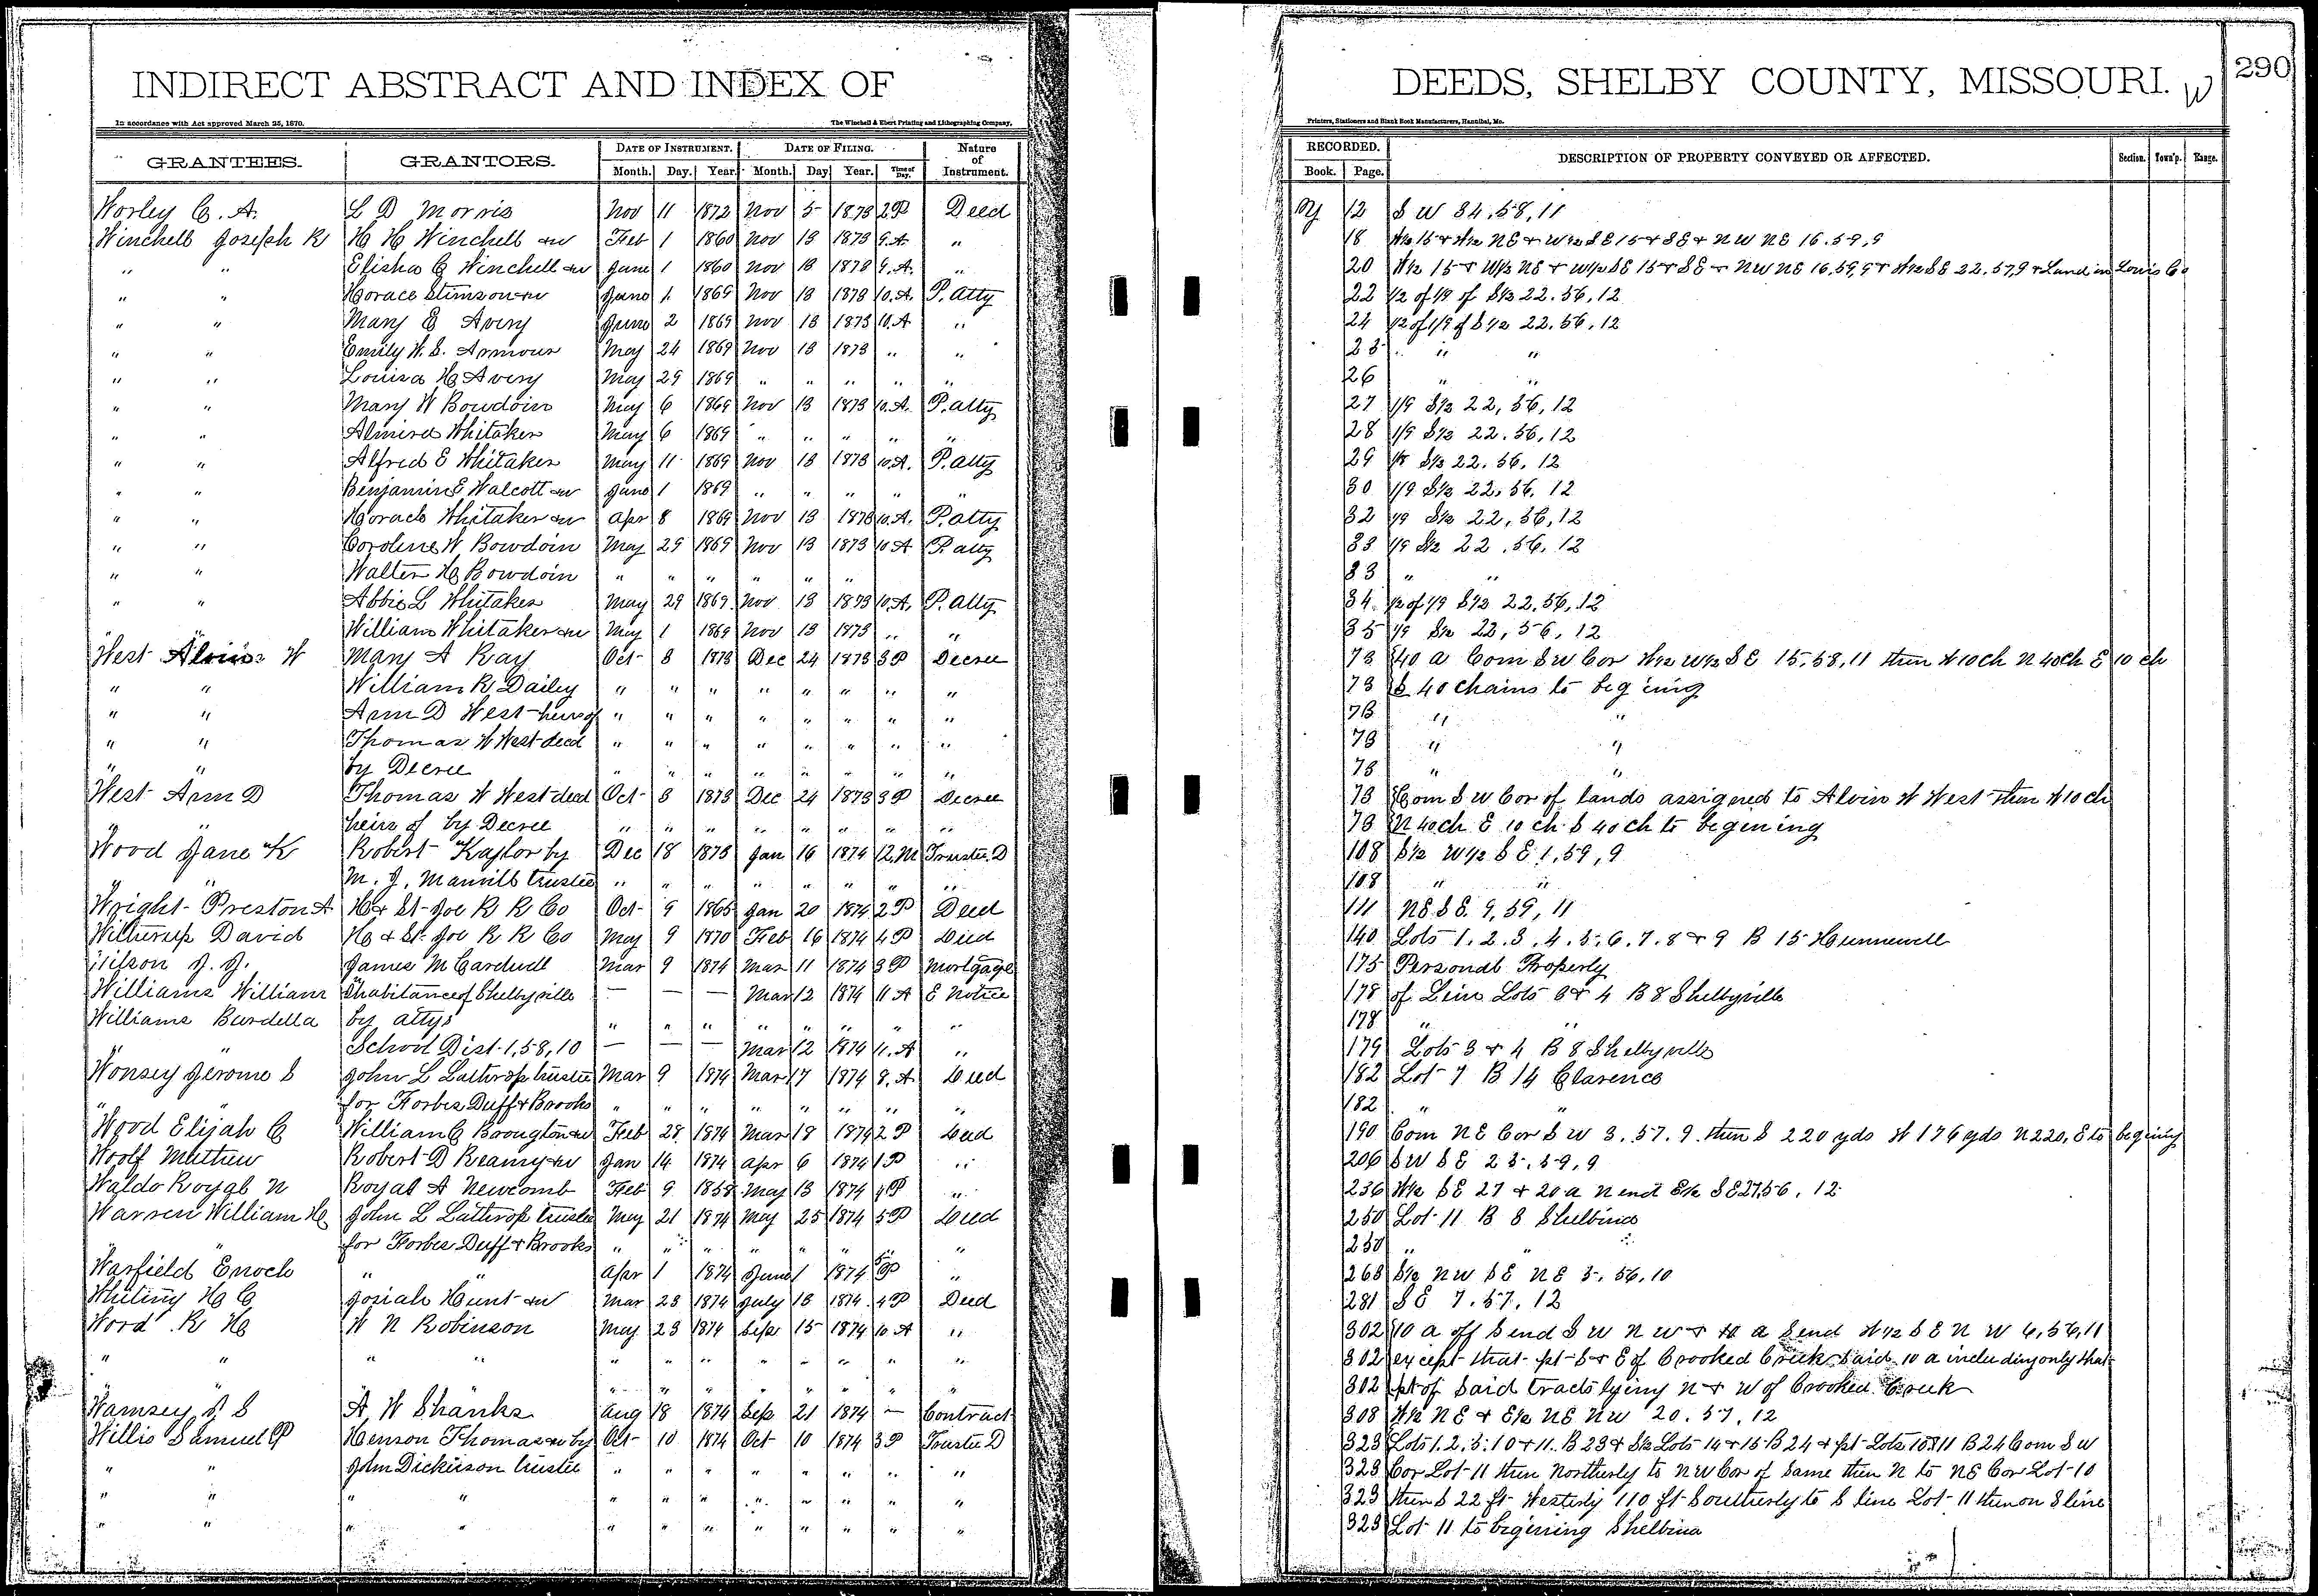 INDIRECT ABSTRACT AND INDEX OF DEEDS, SHELBY COUNTY, MISSOURI. W 290
In accordance with Act approved March 25, 1870. The Winchell & Ebert Printing and Lithographing Company, Printers, Stationers and Blank Book Manufacturers, Hannibal, Mo.
GRANTEES. GRANTORS. DATE OF INSTRUMENT. DATE OF FILING. Nature of Instrument. RECORDED. DESCRIPTION OF PROPERTY CONVEYED OR AFFECTED. Section. Town'p. Range.
Month. Day. Year. Month. Day Year. Time of Day. Book. Page.
Worley C. A. L D Morris Nov 11 1872 Nov 5 1873 2P Deed Y 12 S W 34.58,11
Winchell Joseph R H H Winchell &w Feb 1 1860 Nov 13 1873 9.A. " 18 W½ 15 & W½ NE & W½ SE 15 & SE & NW NE 16.59,9
" " Elisha G Winchell &w June 1 1860 Nov 13 1873 9.A. " 20 W½ 15 & W½ NE & W½ SE 15 & SE & NW NE 16,59,9 & W½ SE 22.57,9 & Land in Lewis Co
" " Horace Stimson &w June 1 1869 Nov 13 1873 10.A. P. Atty 22 ½ of 1/9 of S½ 22.56,12
" " Mary E Avery June 2 1869 Nov 13 1873 10.A " 24 ½ of 1/9 of S½ 22.56,12
" " Emily W. S. Armour May 24 1869 Nov 13 1873 " " 25 " "
" " Louisa H Avery May 29 1869 " " " " " 26 " "
" " Mary W Bowdoin May 6 1869 Nov 13 1873 10.A. P. Atty 27 1/9 S½ 22,56,12
" " Almira Whitaker May 6 1869 " " " " " 28 1/9 S½ 22.56,12
" " Alfred E Whitaker May 11 1869 Nov 13 1873 10.A. P. Atty 29 S½ 22.56.12
" " Benjamin E Walcott &w June 1 1869 " " " " " 30 1/9 S½ 22,56,12
" " Horace Whitaker &w Apr 8 1869 Nov 13 1873 10.A. P. Atty 32 1/9 S½ 22,56,12
" " Caroline W Bowdoin May 29 1869 Nov 13 1873 10 A P. Atty 33 1/9 S½ 22.56,12
" " Walter H Bowdoin " " " " " " 33 " "
" " Abbie L Whitaker May 29 1869 Nov 13 1873 10.A. P. Atty 34 ½ of 1/9 S½ 22,56,12
" " William Whitaker &w May 1 1869 Nov 13 1873 " " 35 1/9 S½ 22,56,12
West Alvin W Mary A Ray Oct 8 1873 Dec 24 1873 3P Decree 73 40 a Com SW Cor W½ W½ SE 15.58,11 then W 10 ch N 40 ch E 10 ch
" " William R Dailey " " " " " " " " 73 S 40 chains to begining
" " Ann D West heirs of " " " " " " " " 73 " "
" " Thomas W West decd " " " " " " " " 73 " "
" " by Decree " " " " " " " " 73 " "
West Ann D Thomas W West decd Oct 8 1873 Dec 24 1873 3P Decree 73 Com SW Cor of lands assigned to Alvin W West then W 10 ch
" " heirs of by Decree " " " " " " " " 73 N 40 ch E 10 ch S 40 ch to begening
Wood Jane K Robert Kaylor by Dec 18 1873 Jan 16 1874 12.M Trustee D 108 S½ W½ SE 1,59,9
" " M. J. Manvill trustee " " " " " " " " 108 " "
Wright Preston A H & St Joe R R Co Oct 9 1865 Jan 20 1874 2P Deed 111 NE SE 9,59,11
Witherup David H & St Joe R R Co May 9 1870 Feb 16 1874 4P Deed 140 Lots 1.2.3.4.5.6.7.8 & 9 B 15 Hunnewell
Wilson J. J. James M Cardwell Mar 9 1874 Mar 11 1874 3P Mortgage 175 Personal Property
Williams William Inhabitance of Shelbyville — — — Mar 12 1874 11 A E Notice 178 of Lein Lots 3 & 4 B 8 Shelbyville
Williams Burdella by attys " " " " " " " " 178 " "
" " School Dist. 1,58,10 — — — Mar 12 1874 11.A " 179 Lots 3 & 4 B 8 Shelbyville
Wonsey Jerome S John L Lathrop trustee Mar 9 1874 Mar 17 1874 8.A Deed 182 Lot 7 B 14 Clarence
" " for Forbes Duff & Brooks " " " " " " " " 182 " "
Wood Elijah C William C Boongton &w Feb 28 1874 Mar 18 1874 2P Deed 190 Com NE Cor SW 3.57.9. then S 220 yds W 176 yds N 220, E to begining
Woolf Mathew Robert D Reamy &w Jan 14 1874 Apr 6 1874 1P " 206 SW SE 25.59,9
Waldo Royal N Royal A Newcomb Feb 9 1858 May 13 1874 4P " 236 W½ SE 27 & 20 a N end E½ SE 27,56,12
Warren William H John L Lathrop trustee May 21 1874 May 25 1874 5P Deed 250 Lot 11 B 8 Shelbina
" " for Forbes Duff & Brooks " " " " " " " " 250 " "
Warfield Enoch " " Apr 1 1874 June 1 1874 5P " 268 S½ NW SE NE 5.56,10
Whiting H C Josiah Hunt &w Mar 23 1874 July 13 1874 4P Deed 281 SE 7.57.12
Word R H W N Robinson May 23 1874 Sep 15 1874 10 A " 302 10 a off S end SW NW & 10 a S end W½ SE NW 6,56,11
" " " " " " " " " " " " 302 except that pt S & E of Crooked Creek said 10 a including only that
" " " " " " " " 302 pt of said tracts lying N & W of Crooked Creek
Wamsey S A W Shanks Aug 18 1874 Sep 21 1874 — Contract 308 W½ NE & E½ NE NW 20.57.12
Willis Samuel P Henson Thomas &w by Oct 10 1874 Oct 10 1874 3P Trustee D 323 Lots 1.2.5.10 & 11. B 23 & S½ Lots 14 & 15 B 24 & pt Lots 10 & 11 B 24 Com SW
" " John Dickerson trustee " " " " " " " " 323 Cor Lot 11 then Northerly to NW Cor of same then N to NE Cor Lot 10
" " " " " " " " " " " " 323 then S 22 ft Westerly 110 ft Southerly to S line Lot 11 then on S line
" " " " " " " " " " " " 323 Lot 11 to begining Shelbina